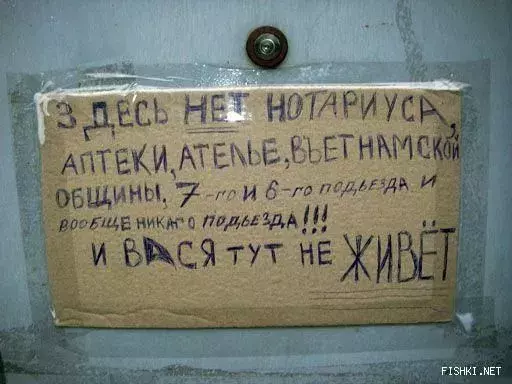 ЗДЕСЬ НЕТ НОТАРИУСА,
АПТЕКИ, АТЕЛЬЕ, ВЪЕТНАМСКОЙ
ОБЩИНЫ, 7-го И 6-го ПОДЬЕЗДА И
ВООБЩЕ НИКАГО ПОДЬЕЗДА!!!
И ВАСЯ ТУТ НЕ ЖИВЁТ
FISHKI.NET